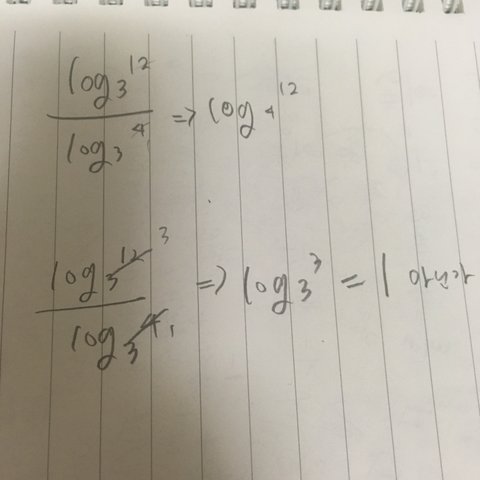 log₃12 / log₃4 ⇒ log₄12
log₃12̸ 3 / log₃4̸ 1 ⇒ log₃3 = 1 아닌가